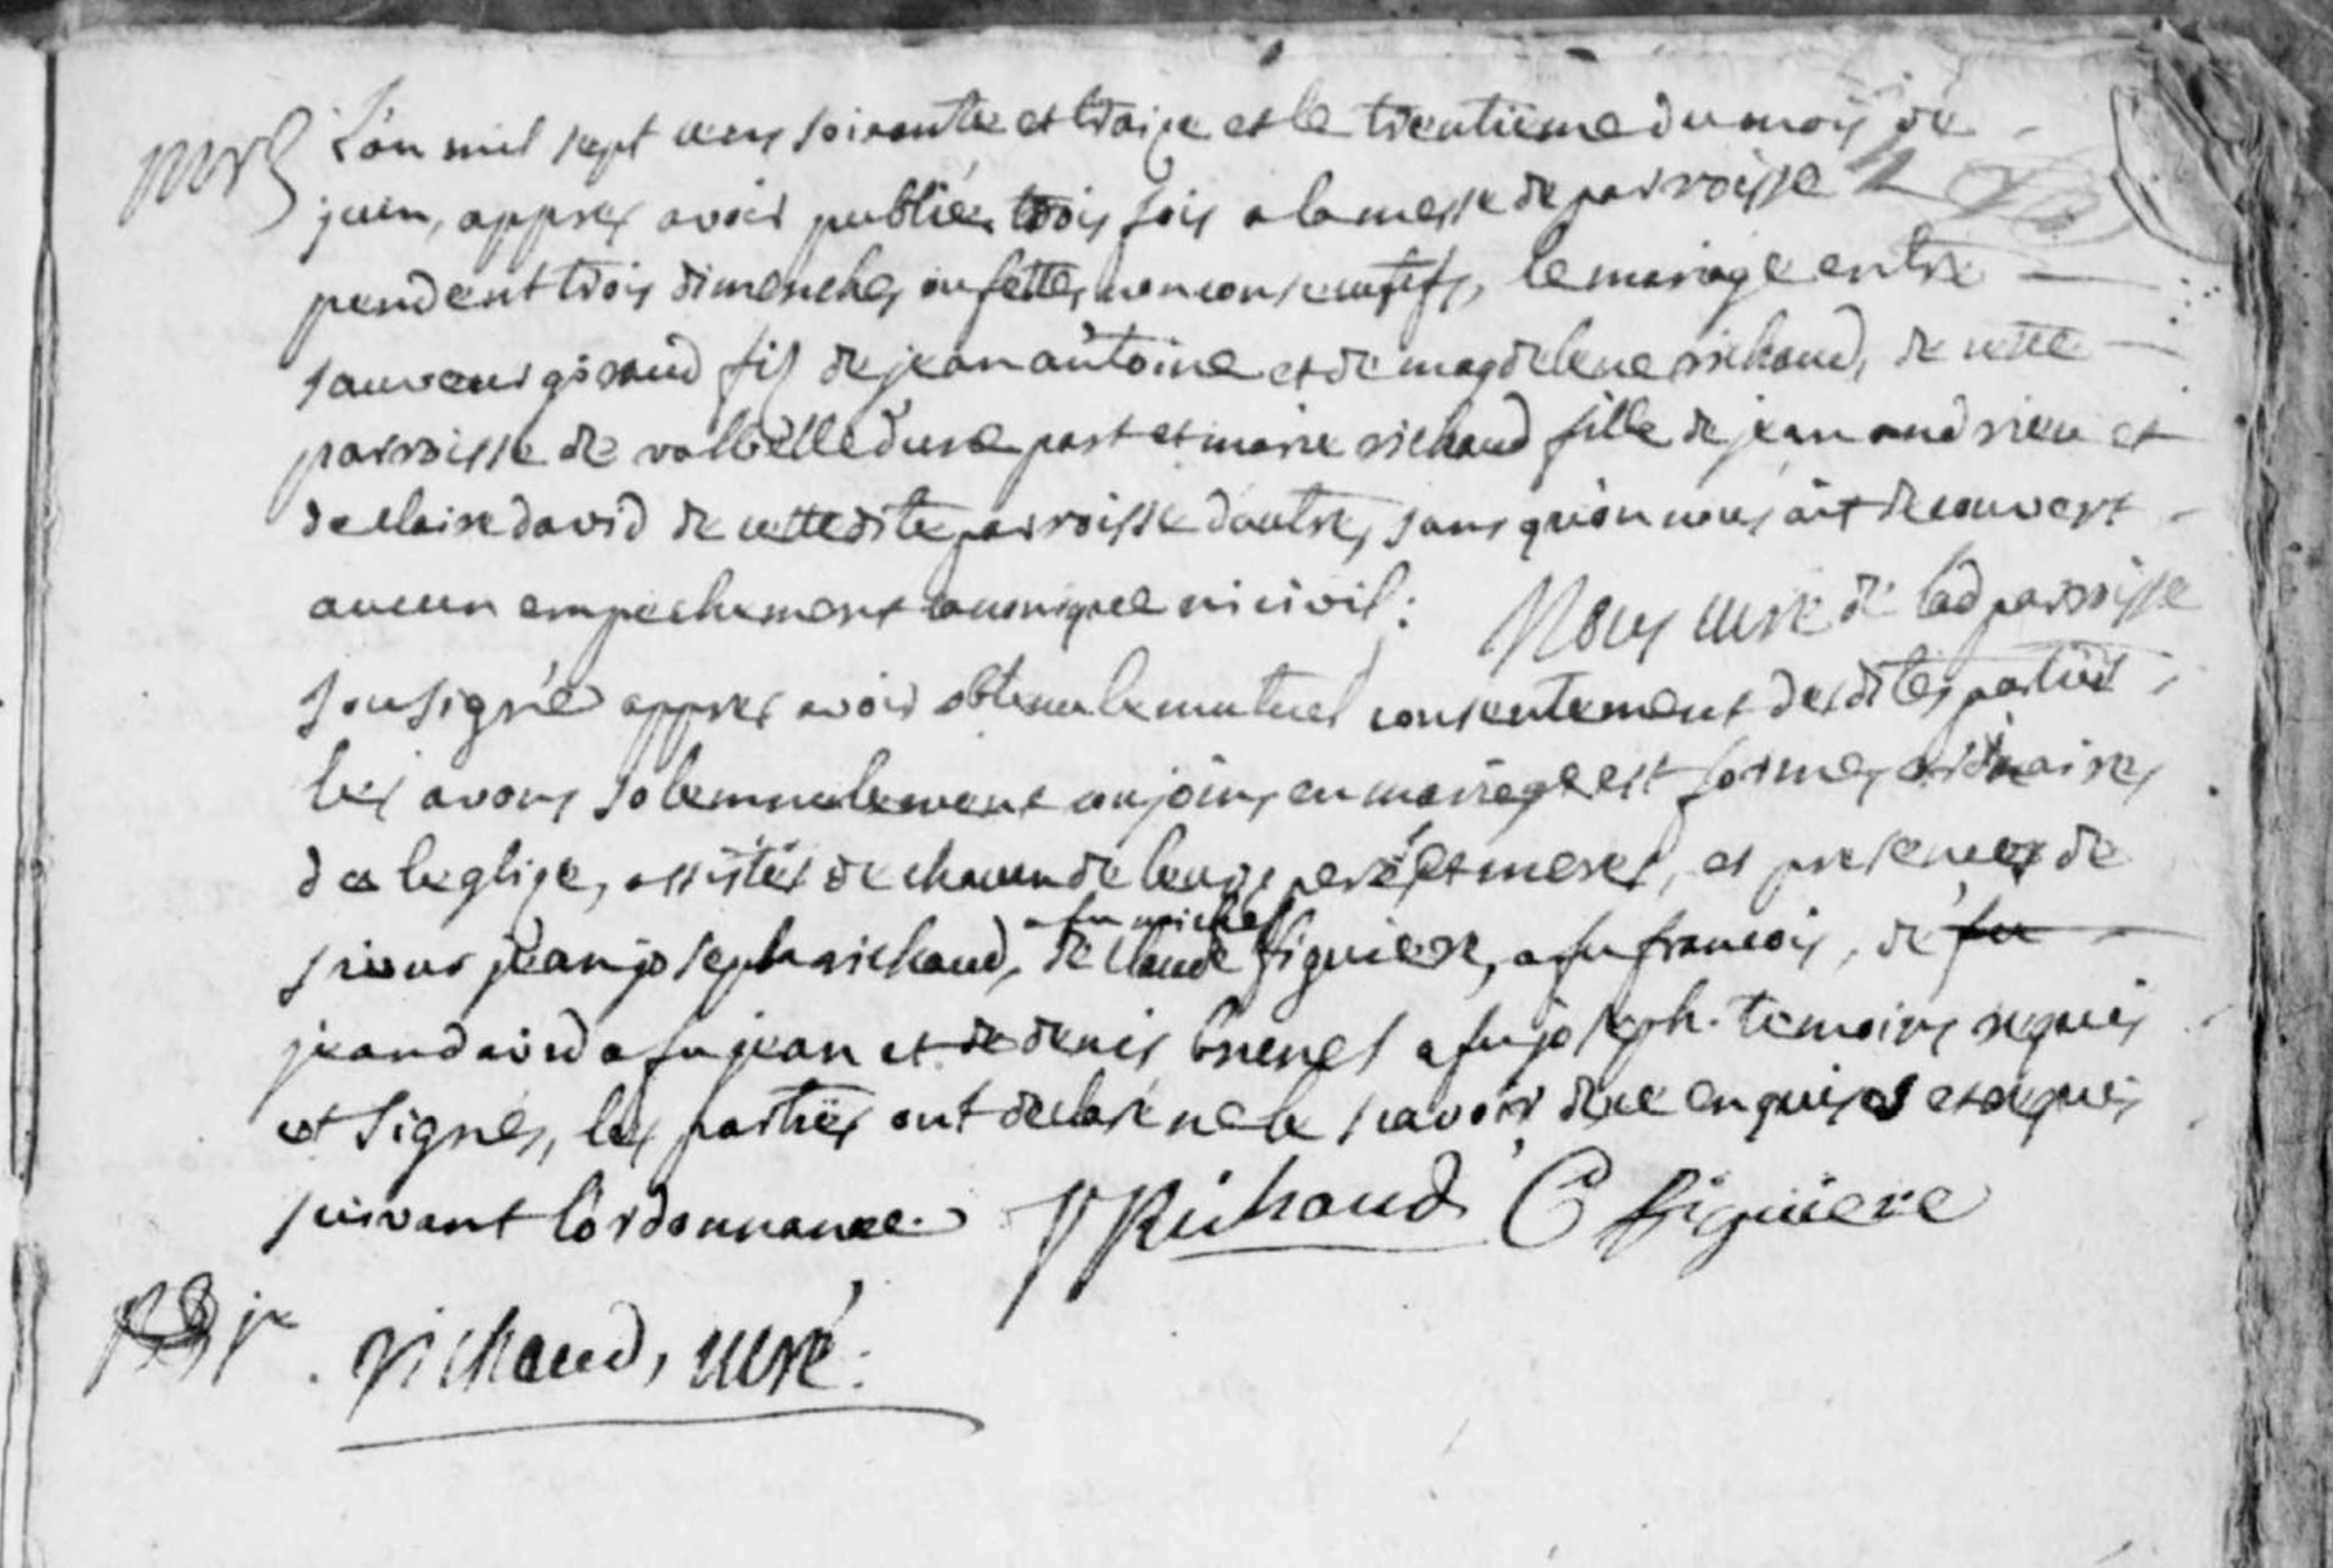 L'an mil sept cens soixante et traize et le trentiéme du mois de
juin, appres avoir publié trois fois a la messe de parroisse
pendent trois dimenches ou fettes non consecutifs, le mariage entre
sauveur giraud fils de jean antoine et de magdelene richaud, de cette
parroisse de valbelle d'une part et marie richaud fille de jean andrieu et
de claire david de cette dite parroisse d'autre, sans qu'on nous ait decouvert
aucun empechement canonique ni civil : Nous curé de lad parroisse
sousigné appres avoir obtenu le mutuel consentement desdites parties
les avons solemnelement conjoins en mariage est formes ordinaires
de l'eglise, assistés de chacun de leurs peres et meres, et presences de
sieur jean joseph richaud, a fu michel de claude figuiere, a fu francois, de fu
jean david a fu jean et de denis brenel a fu joseph. temoins requis
et signés, les parties ont declaré ne le scavoir de ce enquises et requis
suivant l'ordonnance. Richaud C figuiere
richaud, curé.